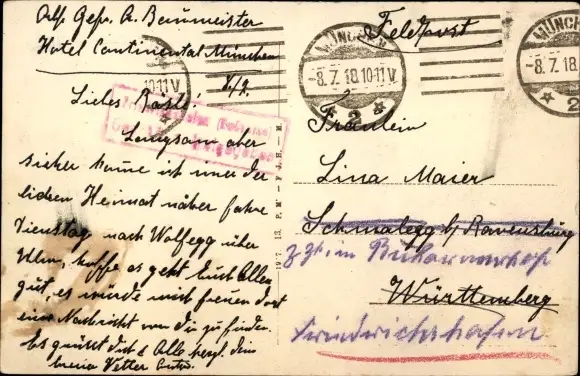 A. Beumeister
Hotel Continental München
8/7.
Liebes
Langsam aber
sicher komme ich immer der
lieben Heimat näher fahre
Dienstag nach Wolfegg über
Ulm, hoffe es geht Euch Allen
gut, es würde mich freuen dort
eine Nachricht von Dir zu finden.
Es grüßt Dich & Alle herzl. Dein
Vetter
Feldpost
MÜNCHEN
-8.7.18.10-11V.
2
MÜNCHEN
-8.7.18.10-11V.
2
10-11V
Fräulein
Lina Maier
Schmalegg b/ Ravensburg
z. Zt. im
Württemberg
Friedrichshafen